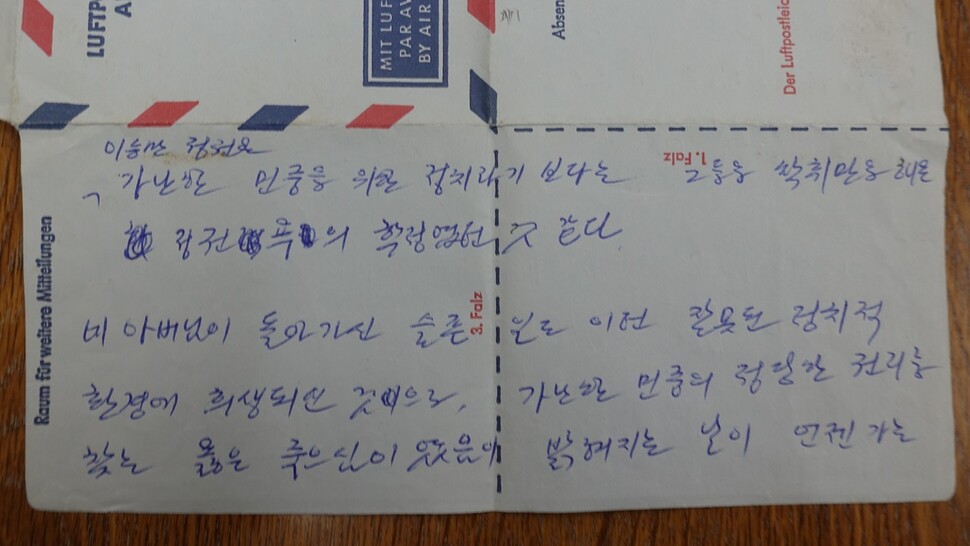 LUFTP
A
MIT LUF
PAR AV
BY AIR
#1
Absen
Der Luftpostleic
Raum für weitere Mitteilungen
1. Falz
3. Falz
이승만 정권은
가난한 민중을 위한 정치라기 보다는 그들을 착취만을 해온
의 학정이었던 것 같다.
네 아버님이 돌아가신 슬픈 일도 이런 잘못된 정치적
환경에 희생되신 것이므로, 가난한 민중의 정당한 권리를
찾는 옳은 죽으심이 었음이 밝혀지는 날이 언젠가는